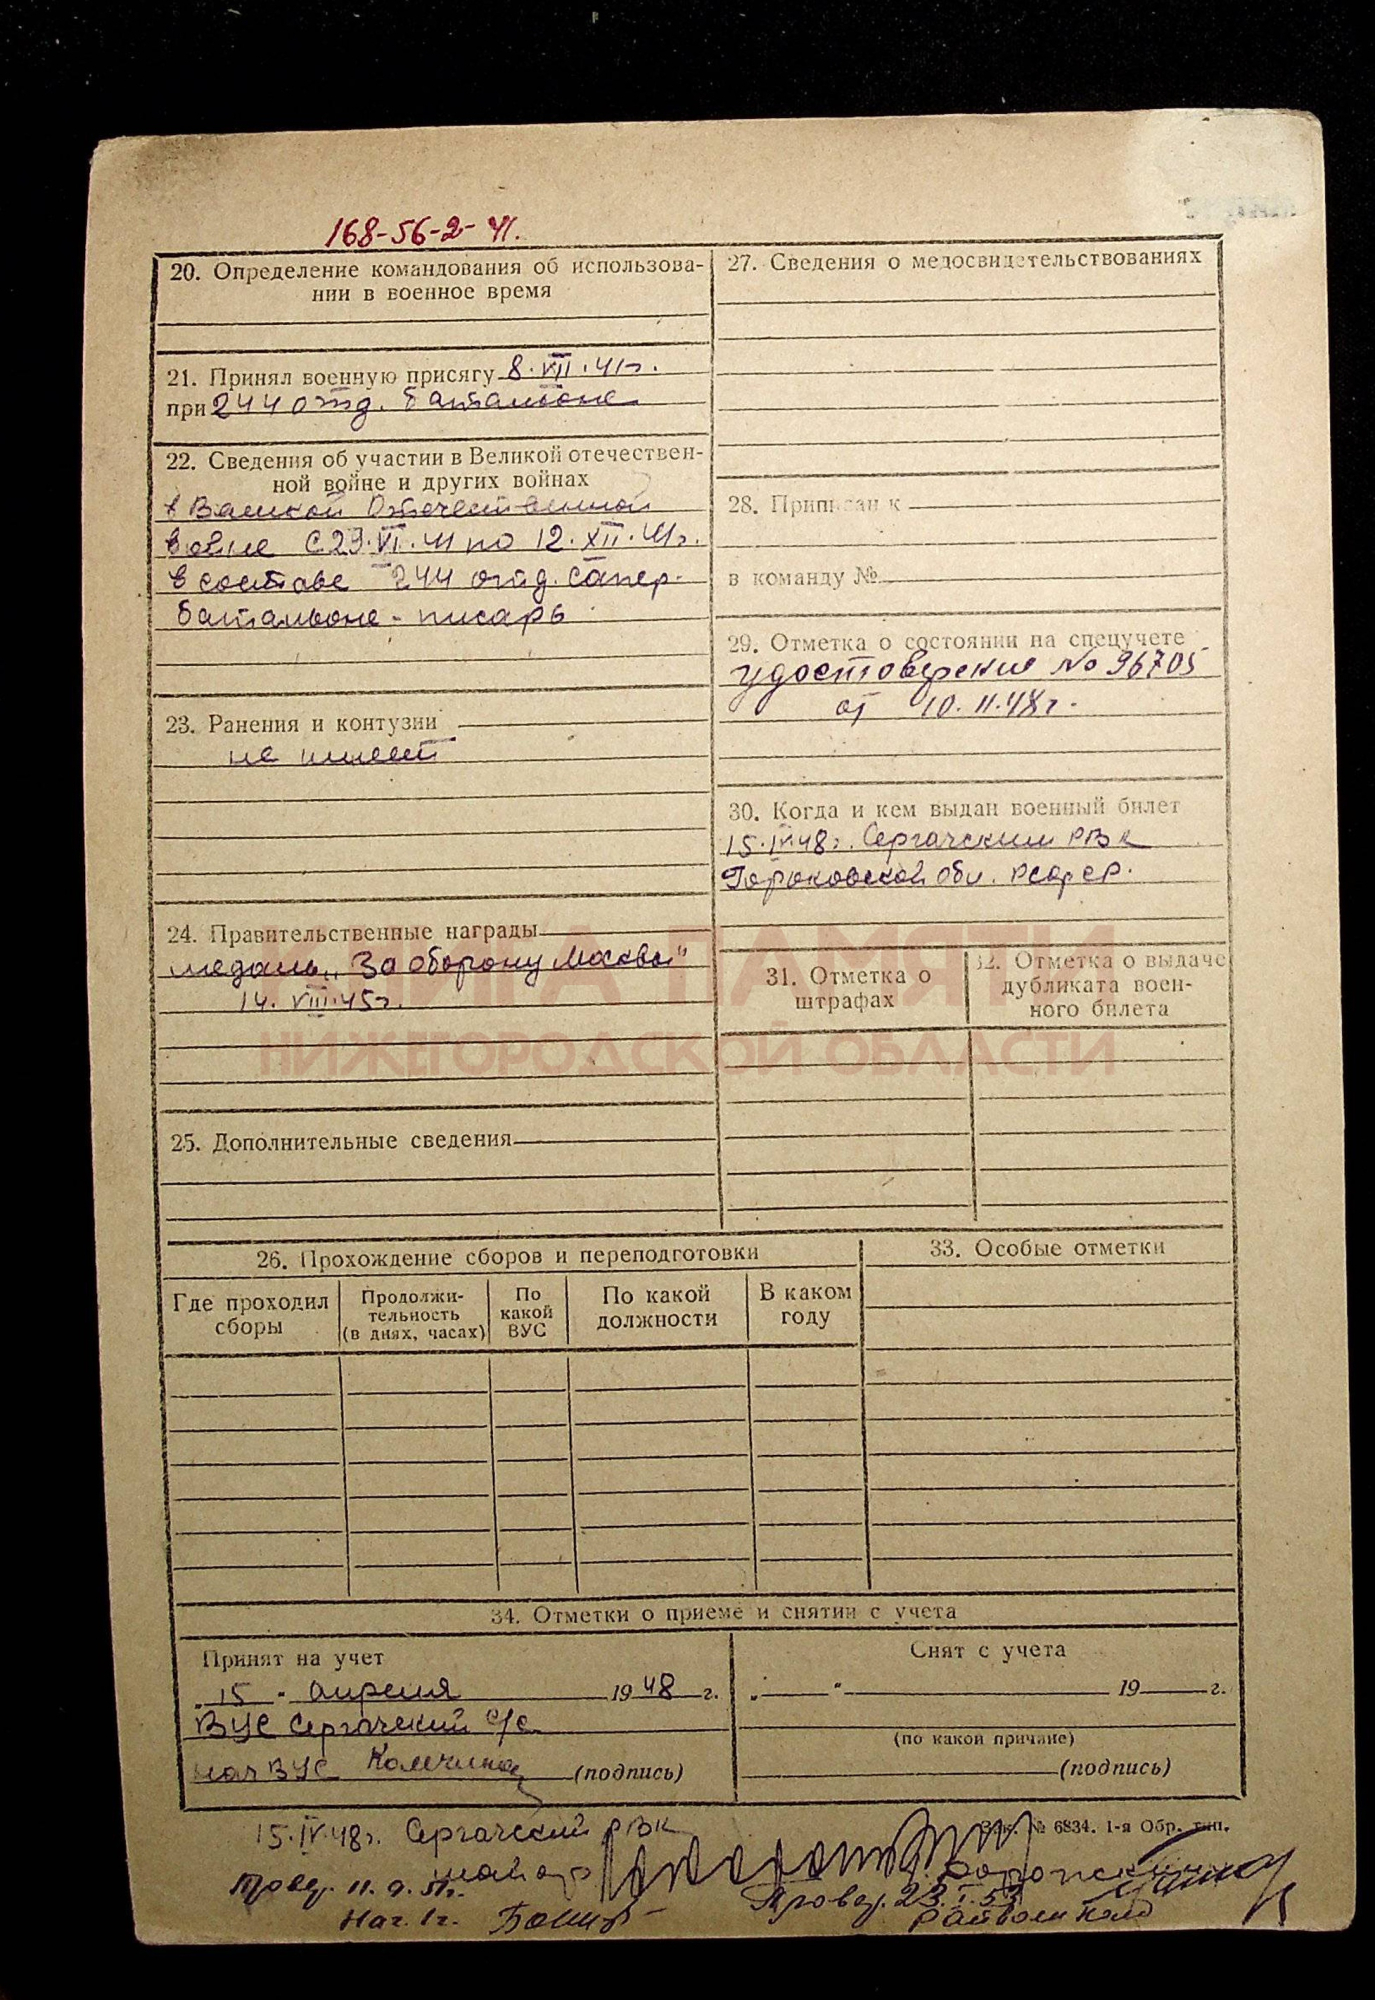 168-56-2-41.
20. Определение командования об использова-
нии в военное время
21. Принял военную присягу 8.VII.41г.
при 244 отд. батальоне
22. Сведения об участии в Великой отечествен-
ной войне и других войнах
в Великой Отечественной
войне с 29.VI.41 по 12.XII.41г.
в составе 244 отд. сапер.
батальоне - писарь
23. Ранения и контузии
не имеет
24. Правительственные награды
медаль „За оборону Москвы"
14.VIII.45г.
25. Дополнительные сведения
27. Сведения о медосвидетельствованиях
28. Приписан к
в команду №
29. Отметка о состоянии на спецучете
удостоверение № 96705
от 10.11.48г.
30. Когда и кем выдан военный билет
15.IV.48г. Сергачским РВК
Горьковской обл. РСФСР.
31. Отметка о
штрафах
32. Отметка о выдаче
дубликата воен-
ного билета
КНИГА ПАМЯТИ
НИЖЕГОРОДСКОЙ ОБЛАСТИ
26. Прохождение сборов и переподготовки
Где проходил
сборы
Продолжи-
тельность
(в днях, часах)
По
какой
ВУС
По какой
должности
В каком
году
33. Особые отметки
34. Отметки о приеме и снятии с учета
Принят на учет
„15" апреля 1948 г.
ВУС Сергачский с/с
нач ВУС (подпись)
Снят с учета
„ " 19 г.
(по какой причине)
(подпись)
Зак. № 6834. 1-я Обр. тип.
15.IV.48г. Сергачский РВК
майор
Провер. 23.I.53
Нач. 1ч.